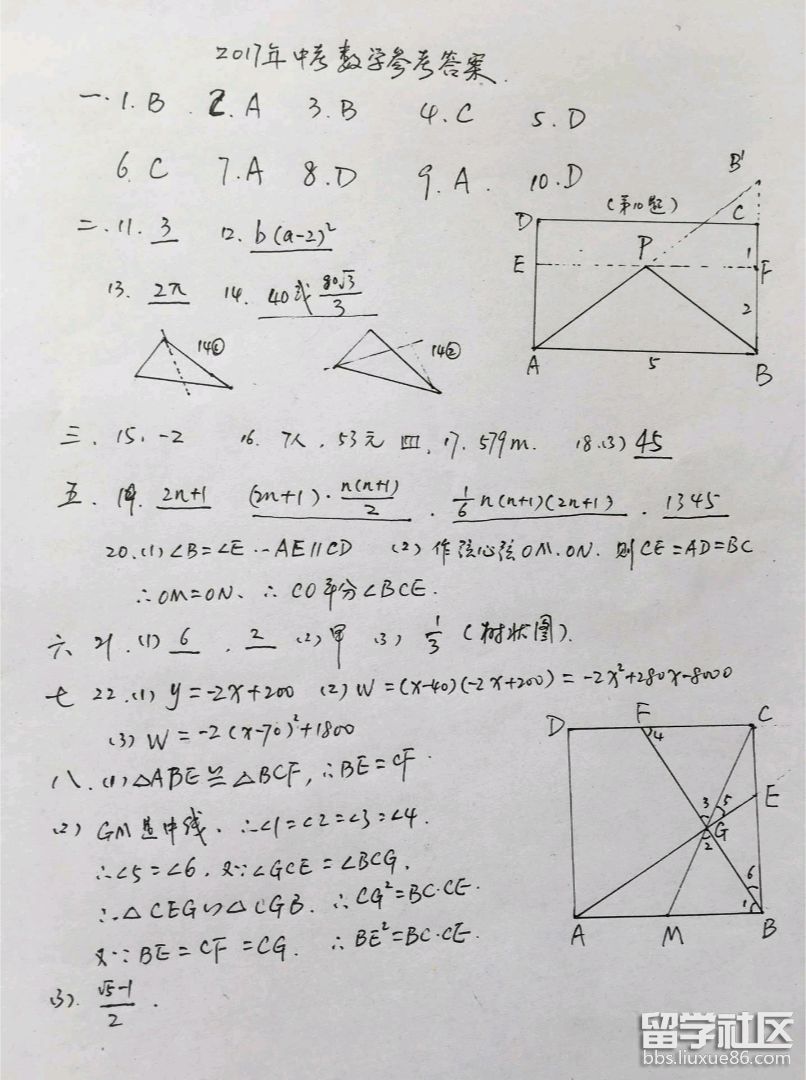 2017年中考数学参考答案.
一.1.B 2.A 3.B 4.C 5.D
6.C 7.A 8.D 9.A. 10.D
二.11. 3 12. b(a-2)²
13. 2π 14. 40或80√3/3
14① 14②
(第10题)
D C B' E P F A B 1 2 5
三. 15. -2 16. 7人, 53元 四. 17. 579m. 18.(3) 45
五. 19. 2n+1 (2n+1)·n(n+1)/2 . 1/6 n(n+1)(2n+1) . 1345
20.(1)∠B=∠E ∵AE∥CD (2) 作弦心弦OM.ON. 则CE=AD=BC
∴OM=ON. ∴CO平分∠BCE.
六 21.(1) 6 . 2 (2)甲 (3) 1/3 (树状图).
七 22.(1) y=-2x+200 (2) W=(x-40)(-2x+200)=-2x²+280x-8000
(3) W=-2(x-70)²+1800
八.(1)△ABE≌△BCF,∴BE=CF.
(2) GM是中线.∴∠1=∠2=∠3=∠4.
∴∠5=∠6.又∵∠GCE=∠BCG.
∴△CEG∽△CGB.∴CG²=BC·CE.
又∵BE=CF=CG. ∴BE²=BC·CE.
(3). (√5-1)/2 .
D F C 4 E 3 5 G 2 6 1 A M B
留学社区
bbs.liuxue86.com